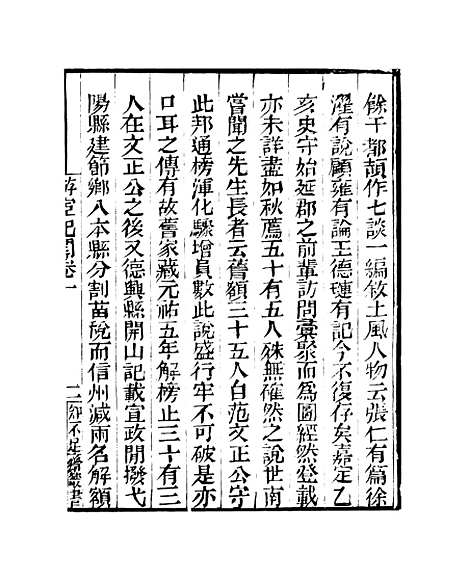 餘干都頡作七談一編敘土風人物云張仁有篇徐
濯有說顧雍有論王德璉有記今不復存矣嘉定乙
亥史守始延郡之前輩訪問彙聚而爲圖經然登載
亦未詳盡如秋薦五十有五人殊無確然之說世南
嘗聞之先生長者云舊額三十五人自范文正公守
此邦通榜渾化驟增員數此說盛行牢不可破是亦
口耳之傳有故舊家藏元祐五年解榜止三十有三
人在文正公之後又德興縣開山記載宣政開撥弋
陽縣建節鄉入本縣分割苗稅而信州減兩名解額
游宦紀聞卷一
二
知不足齋叢書